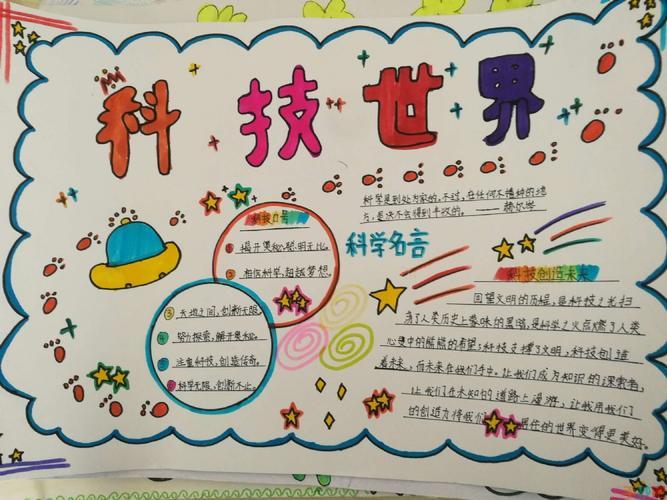 科技世界
科学是到处为家的,不过,在任何不播种的地
方,是决不会得到丰收的。——赫尔岑
科学名言
科技口号
① 揭开奥秘,聪明无比。
② 相信科学,超越梦想。
③ 天地之间,创新无限。
④ 努力探索,解开奥秘。
⑤ 注重科技,创造传奇。
⑥ 科学无限,创新不止。
科技创造未来
回望文明的历程,是科技之光扫
荡了人类历史上蒙昧的黑暗,是科学之火点燃了人类
心灵中的熊熊的希望;科技支撑了文明,科技创造
着未来,而未来在我们手中。让我们成为知识的探索者,
让我们在未知的道路上漫游,让我用我们
的创造力将我们 居住的世界变得更美好。